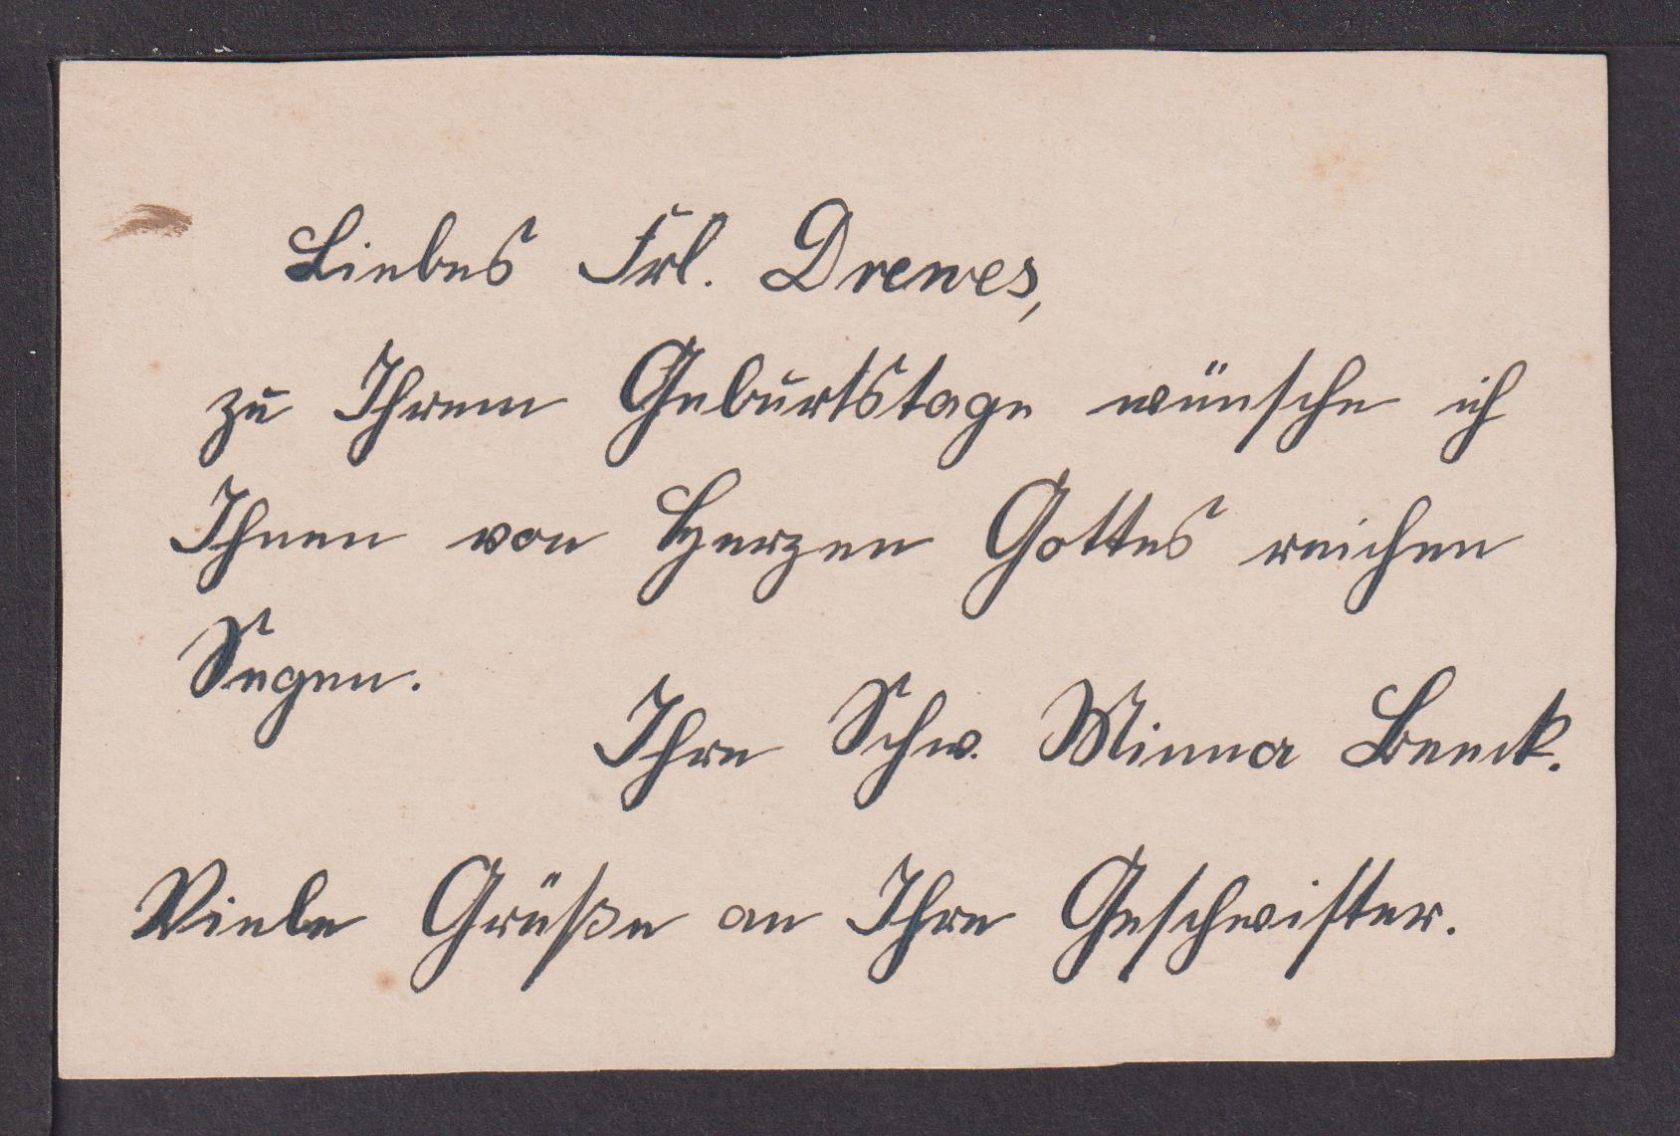 Liebes Frl. Drewes,
zu Ihrem Geburtstage wünsche ich
Ihnen von Herzen Gottes reichen
Segen.
Ihre Schw. Minna Beeck.
Viele Grüße an Ihre Geschwister.